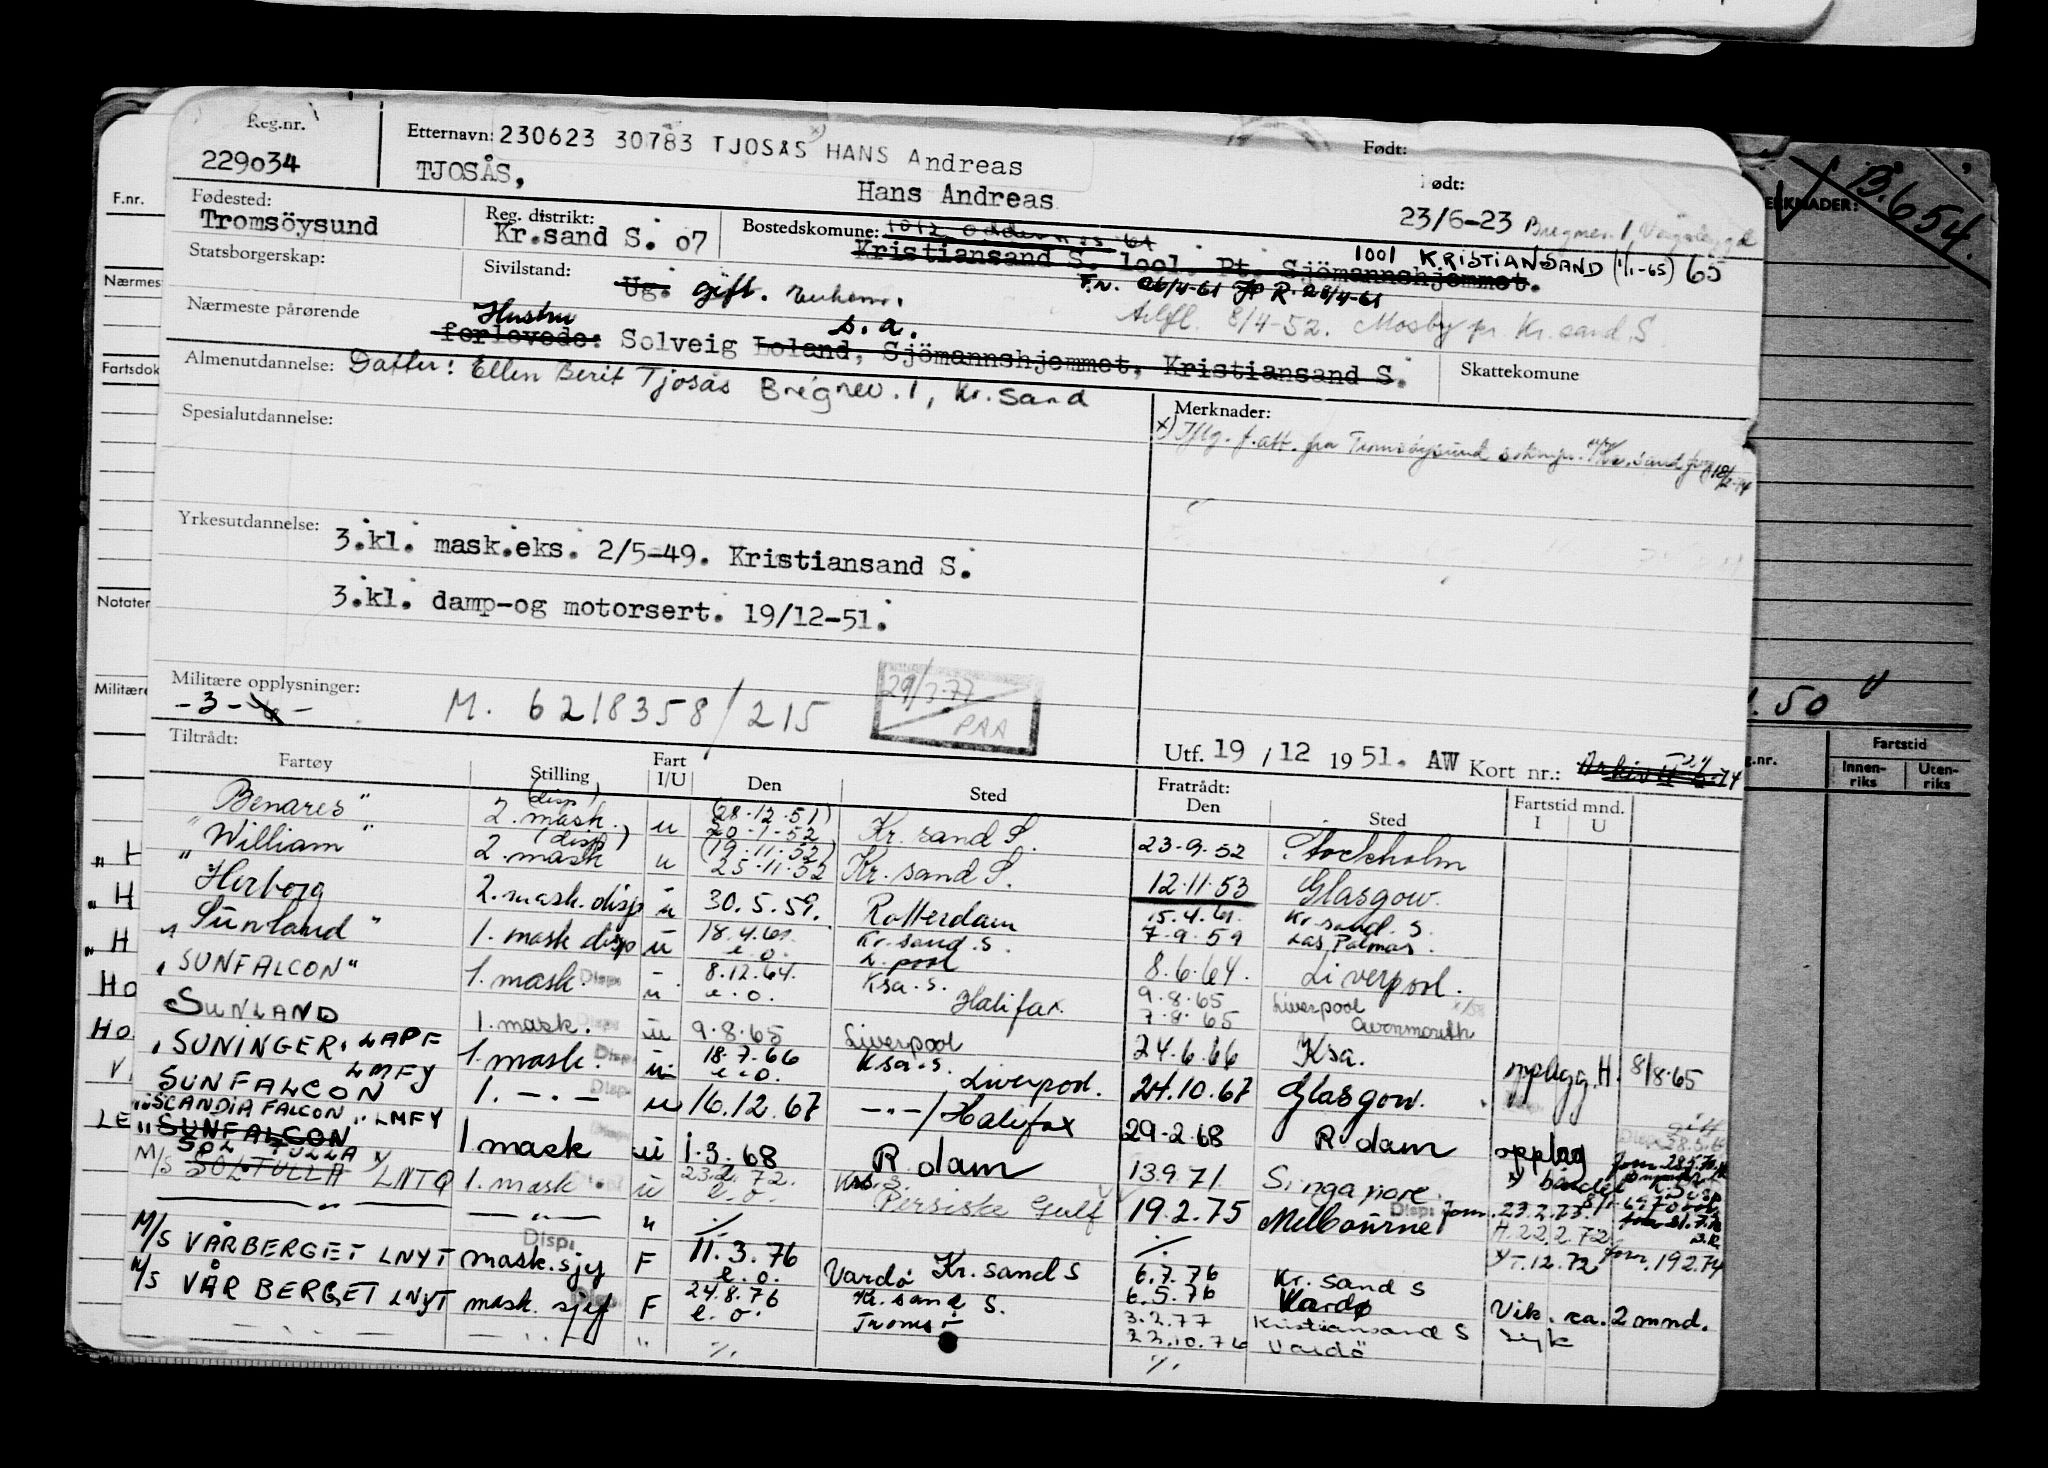 Reg.nr.
229034
Etternavn: 230623 30783 TJOSÅS HANS Andreas
TJOSÅS, Hans Andreas
Født:
Født:
23/6-23 Bregnev. 1, Vågsbygd
Fødested:
Tromsöysund
Reg. distrikt:
Kr.sand S. 07
Bostedskomune: 1012 Oddernes 61
Kristiansand S. 1001. Pt. Sjömannshjemmet.
1001 KRISTIANSAND (1/1-65) 65
F.n. 26/4-61 R. 28/4-61
Statsborgerskap:
Sivilstand:
Ug. gift.
8/4-52. Mosby pr. Kr.sand S
Nærmeste pårørende
Hustru s.a.
forlovede: Solveig Loland, Sjömannshjemmet, Kristiansand S.
Almenutdannelse: Datter: Ellen Berit Tjosås Bregnev. 1, Kr.sand
Skattekomune
Spesialutdannelse:
Merknader:
x) Iflg. f.att. fra Tromsöysund
Yrkesutdannelse:
3.kl. mask.eks. 2/5-49. Kristiansand S.
3.kl. damp-og motorsert. 19/12-51.
Militære opplysninger:
-3-
M. 6218358/215
29/3-77
PAA
Utf. 19 / 12 1951. AW Kort nr.:
Tiltrådt:
Fratrådt:
Fartøy Stilling Fart I/U Den Sted Den Sted Fartstid mnd. I U
"Benares" 2. mask. (disp) u (28.12.51) 20-1-52 Kr.sand S. 23-9-52 Stockholm
"William" 2. mask (disp) u (19.11.52) 25.11.52 Kr.sand S. 12.11.53 Glasgow.
"Herborg 2. mask. disp u 30.5.59. Rotterdam 15.4.61. Kr.sand. S.
7-9-59 Las Palmas.
"Sunland" 1. mask disp u 18.4.61. e.o. Kr.sand.S. L.pool 8.6.64. Liverpool.
"SUNFALCON" 1. mask. Disp. u 8.12.64. e.o. Ksa.S. Halifax. 9.8.65 Liverpool
7.8.65 Avonmouth
SUNLAND 1. mask. Disp. u 9.8.65 Liverpool 24.6.66 Ksa. opplegg. H. 8/8-65
"SUNINGER" LAPF 1. mask. Disp. u 18.7.66 e.o. Ksa.S. Liverpool. 24.10.67 Glasgow.
SUNFALCON LMFY 1. -"- Disp. u 16.12.67 -"-/Halifax 29-2.68 R.dam opplag
"SCANDIA FALCON" LMFY
"SUNFALCON 1 mask u 1.3.68 R.dam 13.9.71. Singapore
SOL TULLA
M/S SOLTULLA LNTQ 1. mask. u 23.2.72. e.o. Krs.S. Persiske Gulf 19.2.75 Melbourne
23.2.73.
H. 22.2.72
T.12.72 19.2.74
M/S VÅRBERGET LNYT mask.sjef Disp. F 11.3.76 e.o. Kr.sand S Vardö 6.7.76 Kr.sand S
6.5.76 Vardø Vik. ca. 2 mnd.
M/S VÅRBERGET LNYT mask. sjef Disp. F 24.8.76 e.o. Kr.sand S. Tromsö 3.2.77 Kristiansand S Syk
22.10.76 Vardö
F.nr.
Nærmest
Fartsdok
Notater
Militære
" H
" H
" H
HO
HO
V
LE
MERKNADER:
B.654.
.50
Fartstid
Innen-riks
Uten-riks